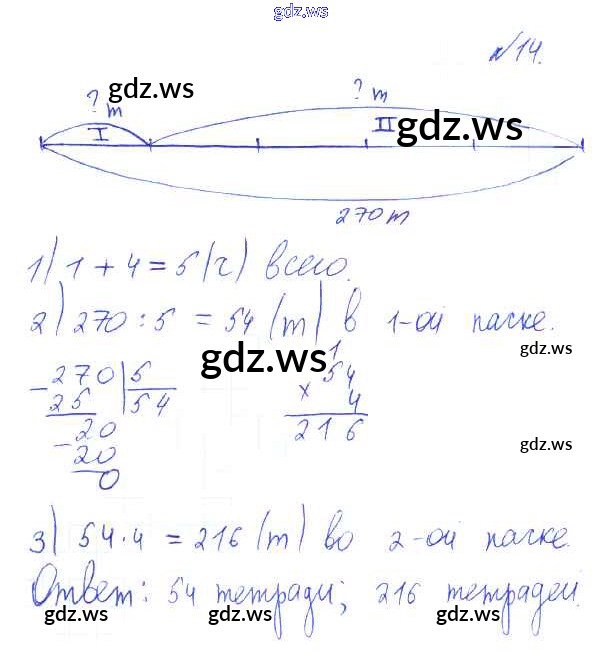 gdz.ws
№14.
? т gdz.ws ? т
I II gdz.ws
270 т
1) 1 + 4 = 5 (ч) всего.
2) 270 : 5 = 54 (т) в 1-ой пачке.
gdz.ws gdz.ws
- 270 | 5
25 | 54
- 20
20
0
1
54
× 4
216
gdz.ws
3) 54 · 4 = 216 (т) во 2-ой пачке.
Ответ: 54 тетради; 216 тетрадей.
gdz.ws gdz.ws gdz.ws